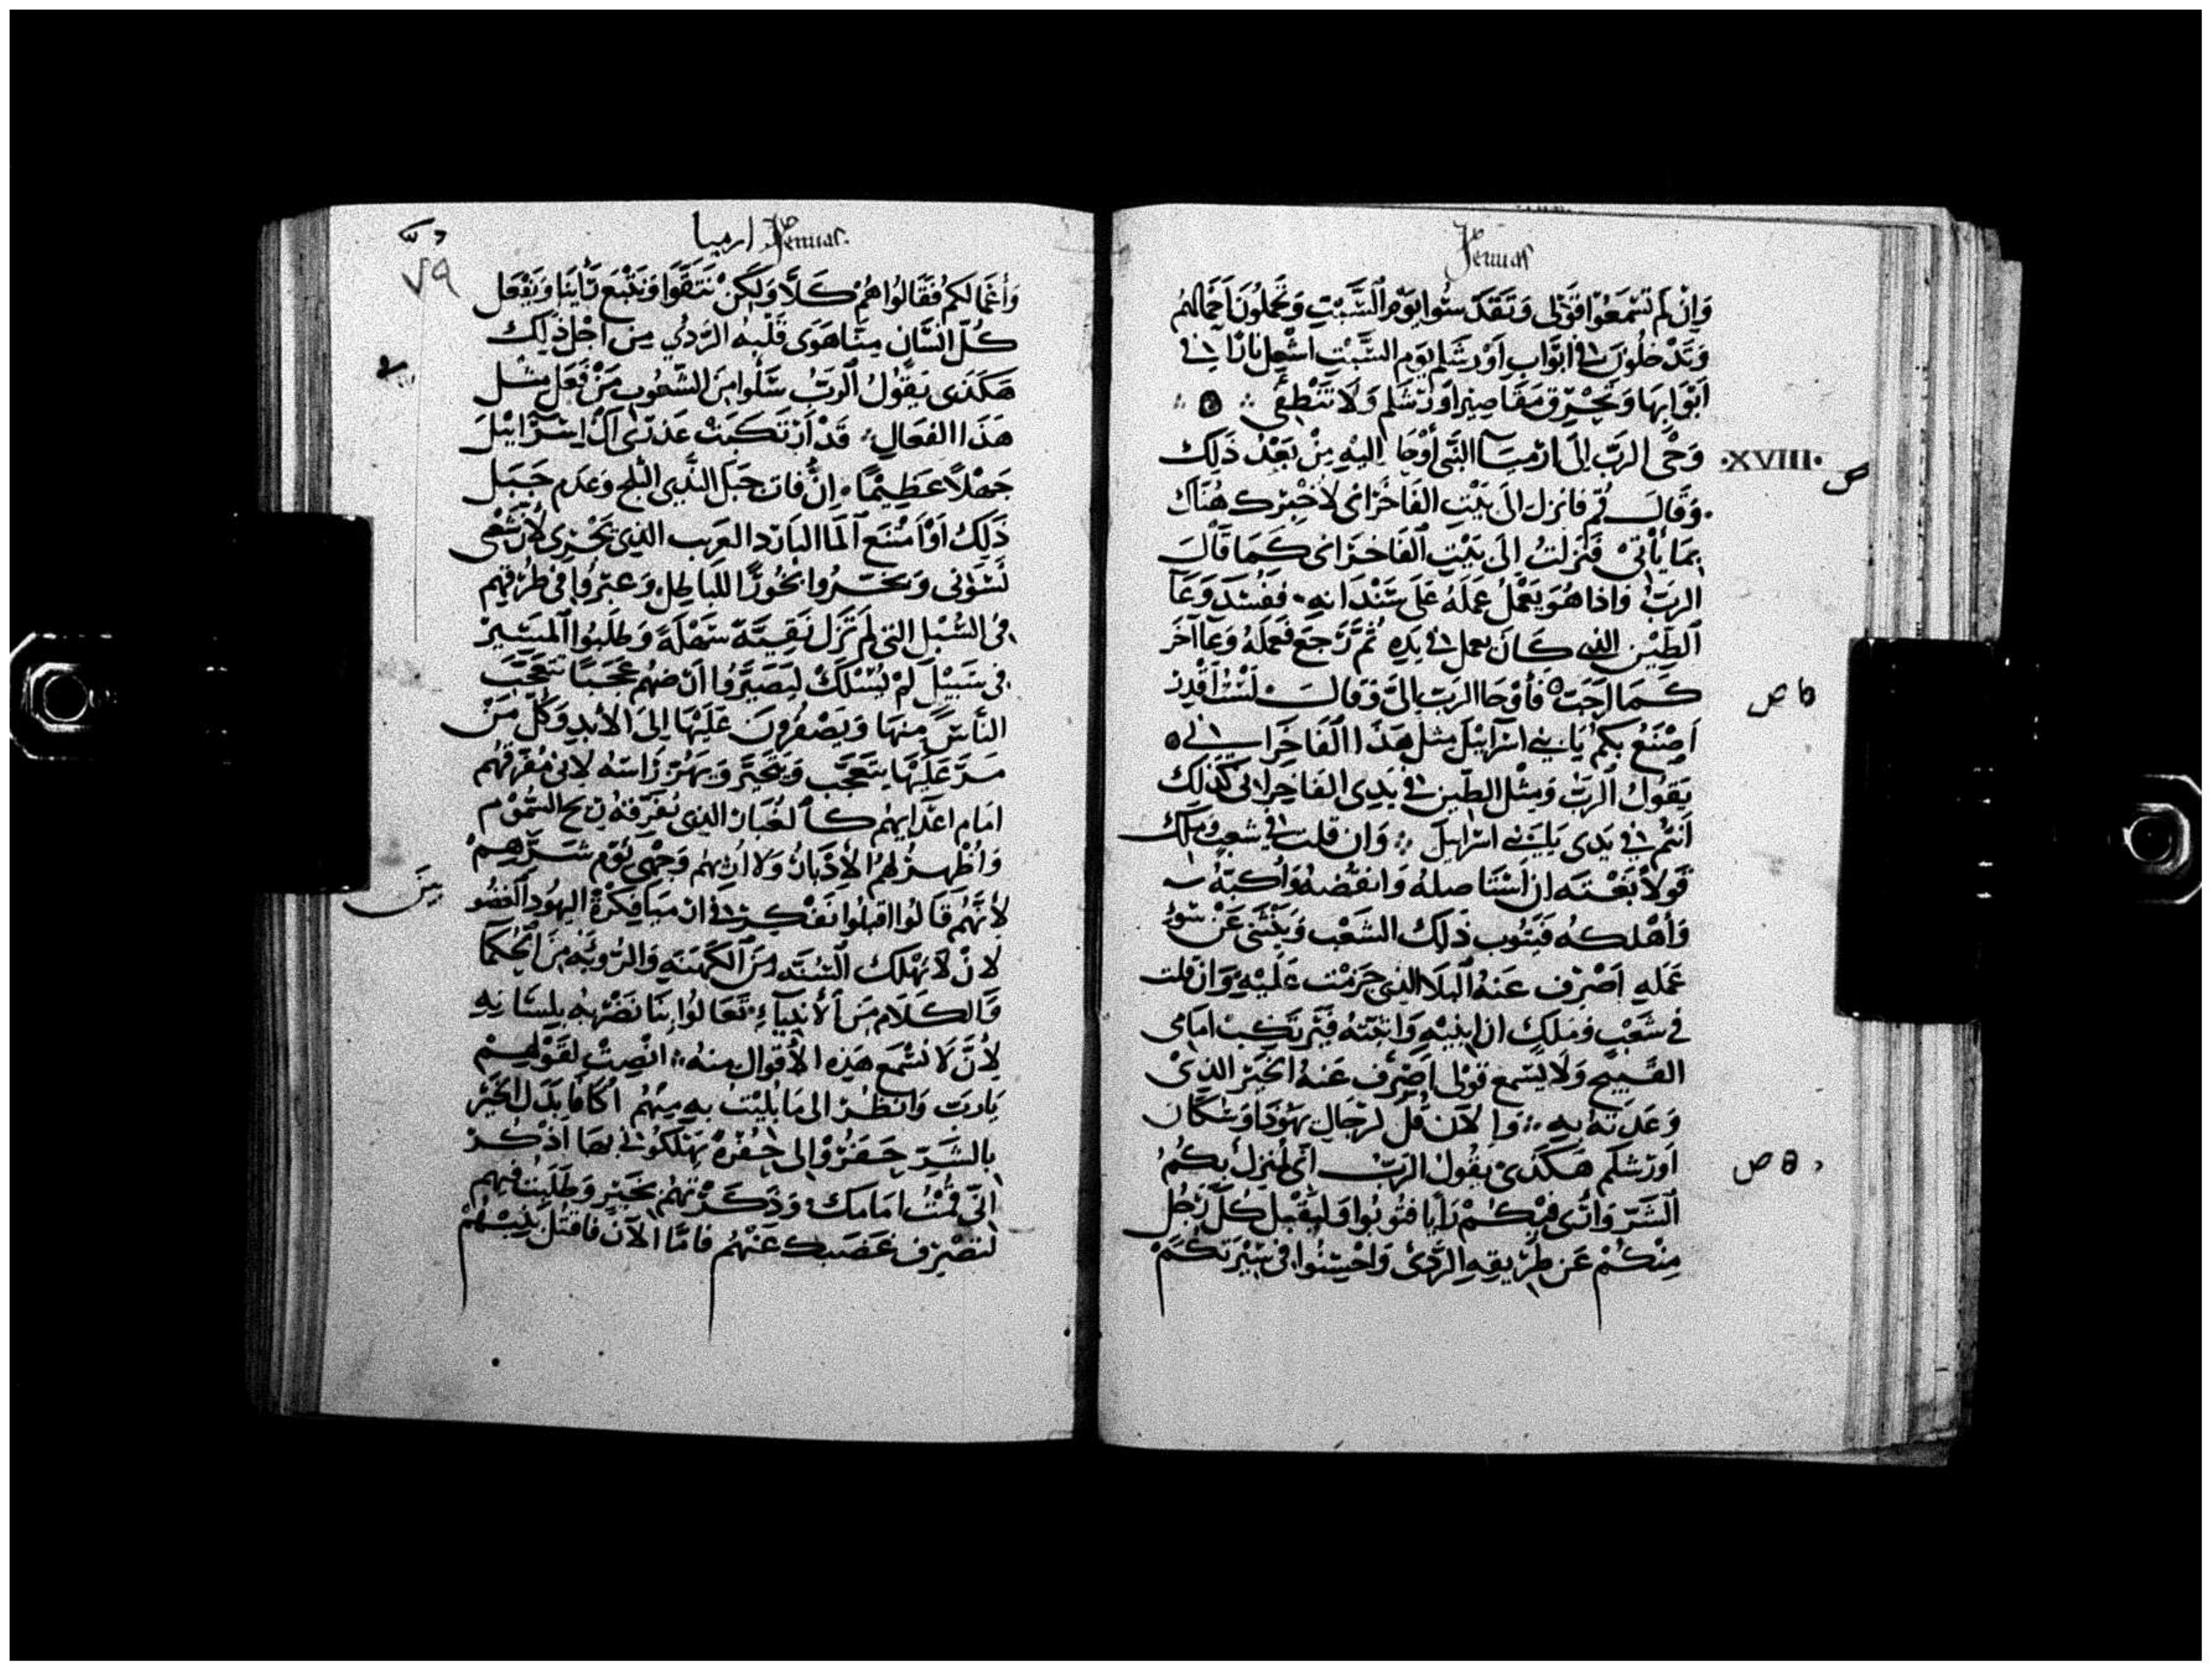 Jeremias
وَاِنْ لَمْ تَسْمَعُوا قَوْلى وَتُقَدّسُوا يَوْمِ السَّبْتِ وَتحْمِلُونَ اَحْمَالكُمْ
وَتَدْخُلُونَ فى ابْوَابِ اَوْرشَلِم يَوم السَّبْتِ اشْعِل نارًا فى
اَبْوَابِهَا وَتُحْرِق مَقَاصِيْر اَوْرشَلِم وَلَا تَنْطَفى
XVIII ص
وَحْى الرَبّ اِلَى ارْميَا النَّبى أَوْحَا اِليْهِ مِنْ بَعْدَ ذَلِكَ
وَقَالَ قُم فانزِل الَى بَيْتِ الفَاخُرَانى لأخْبِرَك هُنَاك
بمَا يَأتى فَنَزَلتُ اِلَى بَيْتِ الفَاخرَانى كَمَا قَالَ
الرَبّ وَاذا هُوَ يَعْمَلُ عَمَلَهُ عَلَى سَنْدَانِهِ فَفَسَدَ وَعَآ
اَلطّيْن الذى كَانَ يعمل فى يَدِهِ ثُمّ رَجعَ فَعَملَهُ وعَآ آخَر
كَمَا اَحَبّ فَأَوْحَا الرَبّ اِلَىّ وَقَالَ لَسْتُ اَقْدِر
ه‍ ص
اَصْنَعُ بكُمْ يَا بَنى اسْرَايِيْل مِثل هَذَا الفَاخرَانى
يَقولُ الرَبّ وَمِثْل الطّيْن فى يَدِى الفَاخِرَانى كَذَلِك
اَنتُمْ فى يَدى يَا بَنى اسْرَايِيل وَان قلت فى شَعبٍ وملك
قَولاً بَغْتَه ان اسْتَاصلهُ وَانفُضهُ وَأكبّهُ
وَأهْلكُه فَيَتُوب ذَلِكَ الشَعْب وَيَنْثَنى عَنْ سُوء
عَمَلهِ اَصْرِف عَنهُ البَلَا الذى جَزمْت عَلَيْهِ وَان قلت
فى شَعْب وَمَلكٍ ان ابْنِيْهِ وَاثبّتهُ فَيَرتَكِب امَامى
القَبِيْح وَلَا يَسْمع قولى اَصْرف عَنهُ الخَيْر الذىْ
وَعَدْتهُ بهِ وَالآن قُلْ لرِجَالِ يَهُودَا وَسُكّان
اَورَشلم هَكَذى يَقُولُ الرَبّ انّى مُنزلٌ بكُمُ
ه ص
اَلشَرّ وَاَرَى فيكمْ رَأيًا فتُوبُوا وَليُقْبل كُلّ رَجُل
مِنكُمْ عَن طَرِيقِهِ الرَّدِىّ وَاحْسِنُوا فى سِيْرَتكُمْ
ارميا Jeremias
٧٩
وَأعْمَالكُم فَقَالُوا هُمْ كَلَّا وَلَكِنْ نَتَقَوّا وَنَتْبَع رَأيَنَا وَيَفْعَل
كُلّ انسَان مِنّا هَوَى قَلْبِهُ الرَدىّ مِن اَجْل ذَلِك
هَكَذَى يَقُولُ الرَبّ سَلُوا مِنَ الشّعُوب مَنْ فَعَل مِثل
هَذَا الفعَال قَدْ ارْتَكَبَتْ عَذرَى آل اسْرَايِيْل
جَهْلاً عَظِيمًا اِنْ فَات جَبَل الثَّدى الثلج وَعَدَم جَبَل
ذَلِكَ اَوْ اَمْتَنَع اَلمَا البَارد العَرب الذى يَجْرى لأنّ شَعْبى
نَسَوْنى وَبَخّرُوا بُخُورًا للبَاطِل وَعَبرُوا فى طُرُقِهم
فى السُبْل التى لَمْ تَزَل نَقِيَّةً سَهْلَةً وَطَلَبُوا اَلمَسِيْرَ
فى سَبِيْل لَمْ يُسْلَكْ لِيصَيّرُوا اَرْضهُم عَجَبًا يتَعَجّب
النَاسُ منهَا وَيَصفُرونَ عَلَيْهَا اِلى الأبَدِ وَكُلّ مَنْ
مَرّ عَلَيْهَا يَتَعَجّب وَيَتحَيّر وَيهُزّ رَاسَهُ لانى مُفَرّقُهُم
امَام اعْدَايِهِم كَالغُبَار الذى تُفَرّقهُ ريح السَّمُوْم
وَأُظْهِرُ لَهُمُ الأدْبَارَ وَلا ارِيْهِم وَجْهى يَوْمَ شَرِّهِمْ
لأنَّهُم قَالُوا اقبلُوا نَفْتكِرْ فى ارْميَا فِكْرَةً
مِنَ
لانْ لَا يَهْلك السُنّه مِنَ الكَهَنَهِ وَالرُويَهِ مِنَ الحُكَمَا
وَالكَلَام مِنَ الأنْبِيَآءِ تَعَالُوا بنَا نَضْرِبُهُ بِلِسَانِهِ
لأنّ لَا نَسْمَع هَذِهِ الأقْوَال مِنهُ انْصِتْ لِقَوْلهِمْ
يَا رَبّ وَانظُرْ الى مَا بُلِيْتُ بهِ مِنْهُمْ اكافا بَدَل الخَيْر
بالشَرّ حَفَرُوْا لى حُفْرَةً يُهْلكُونى بهَا اذْكُرْ
انّى قُمْتُ امَامَك وَذَكَرْتَهُم بخَيْر وَطَلَبْتُ فِيهِم
لتَصْرِف غَضَبك عَنْهُم فَامّا الآنَ فَاقتُل بَنِيْهُمْ